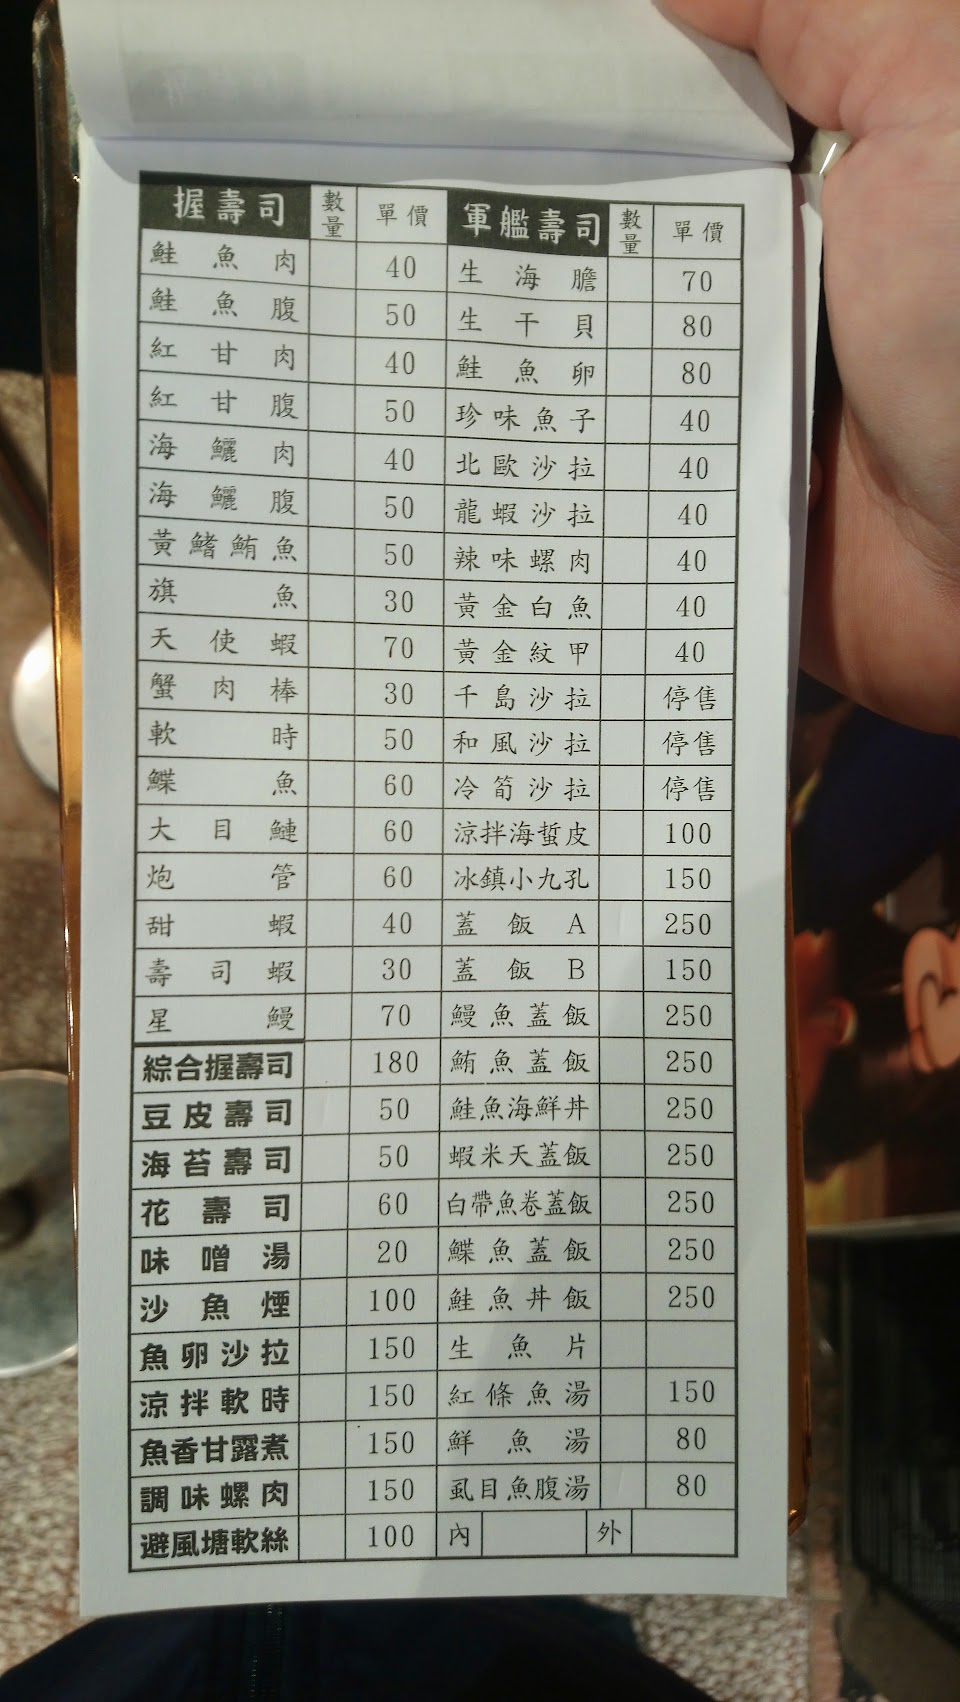 握壽司 數量 單價 軍艦壽司 數量 單價
鮭魚肉 40 生海膽 70
鮭魚腹 50 生干貝 80
紅甘肉 40 鮭魚卵 80
紅甘腹 50 珍味魚子 40
海鱺肉 40 北歐沙拉 40
海鱺腹 50 龍蝦沙拉 40
黃鰭鮪魚 50 辣味螺肉 40
旗魚 30 黃金白魚 40
天使蝦 70 黃金紋甲 40
蟹肉棒 30 千島沙拉 停售
軟時 50 和風沙拉 停售
鰈魚 60 冷筍沙拉 停售
大目鰱 60 涼拌海蜇皮 100
炮管 60 冰鎮小九孔 150
甜蝦 40 蓋飯A 250
壽司蝦 30 蓋飯B 150
星鰻 70 鰻魚蓋飯 250
綜合握壽司 180 鮪魚蓋飯 250
豆皮壽司 50 鮭魚海鮮丼 250
海苔壽司 50 蝦米天蓋飯 250
花壽司 60 白帶魚卷蓋飯 250
味噌湯 20 鰈魚蓋飯 250
沙魚煙 100 鮭魚丼飯 250
魚卵沙拉 150 生魚片
涼拌軟時 150 紅條魚湯 150
魚香甘露煮 150 鮮魚湯 80
調味螺肉 150 虱目魚腹湯 80
避風塘軟絲 100 內 外